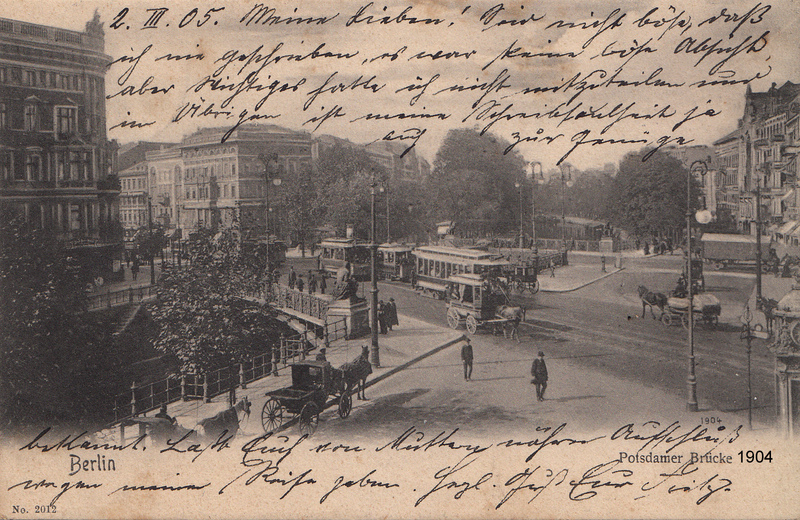 2. III. 05. Meine Lieben! Seid nicht böse, daß
ich nie geschrieben, es war keine böse Absicht,
aber Wichtiges hatte ich nicht mitzuteilen und
im Übrigen ist meine Schreibfaulheit ja
auch zur Genüge
1904
bekannt. Laßt Euch von Muttern nähere Aufschluß
Berlin
Potsdamer Brücke 1904
wegen meiner Reise geben. Hrzl. Gruß Euer Fritz.
No. 2012